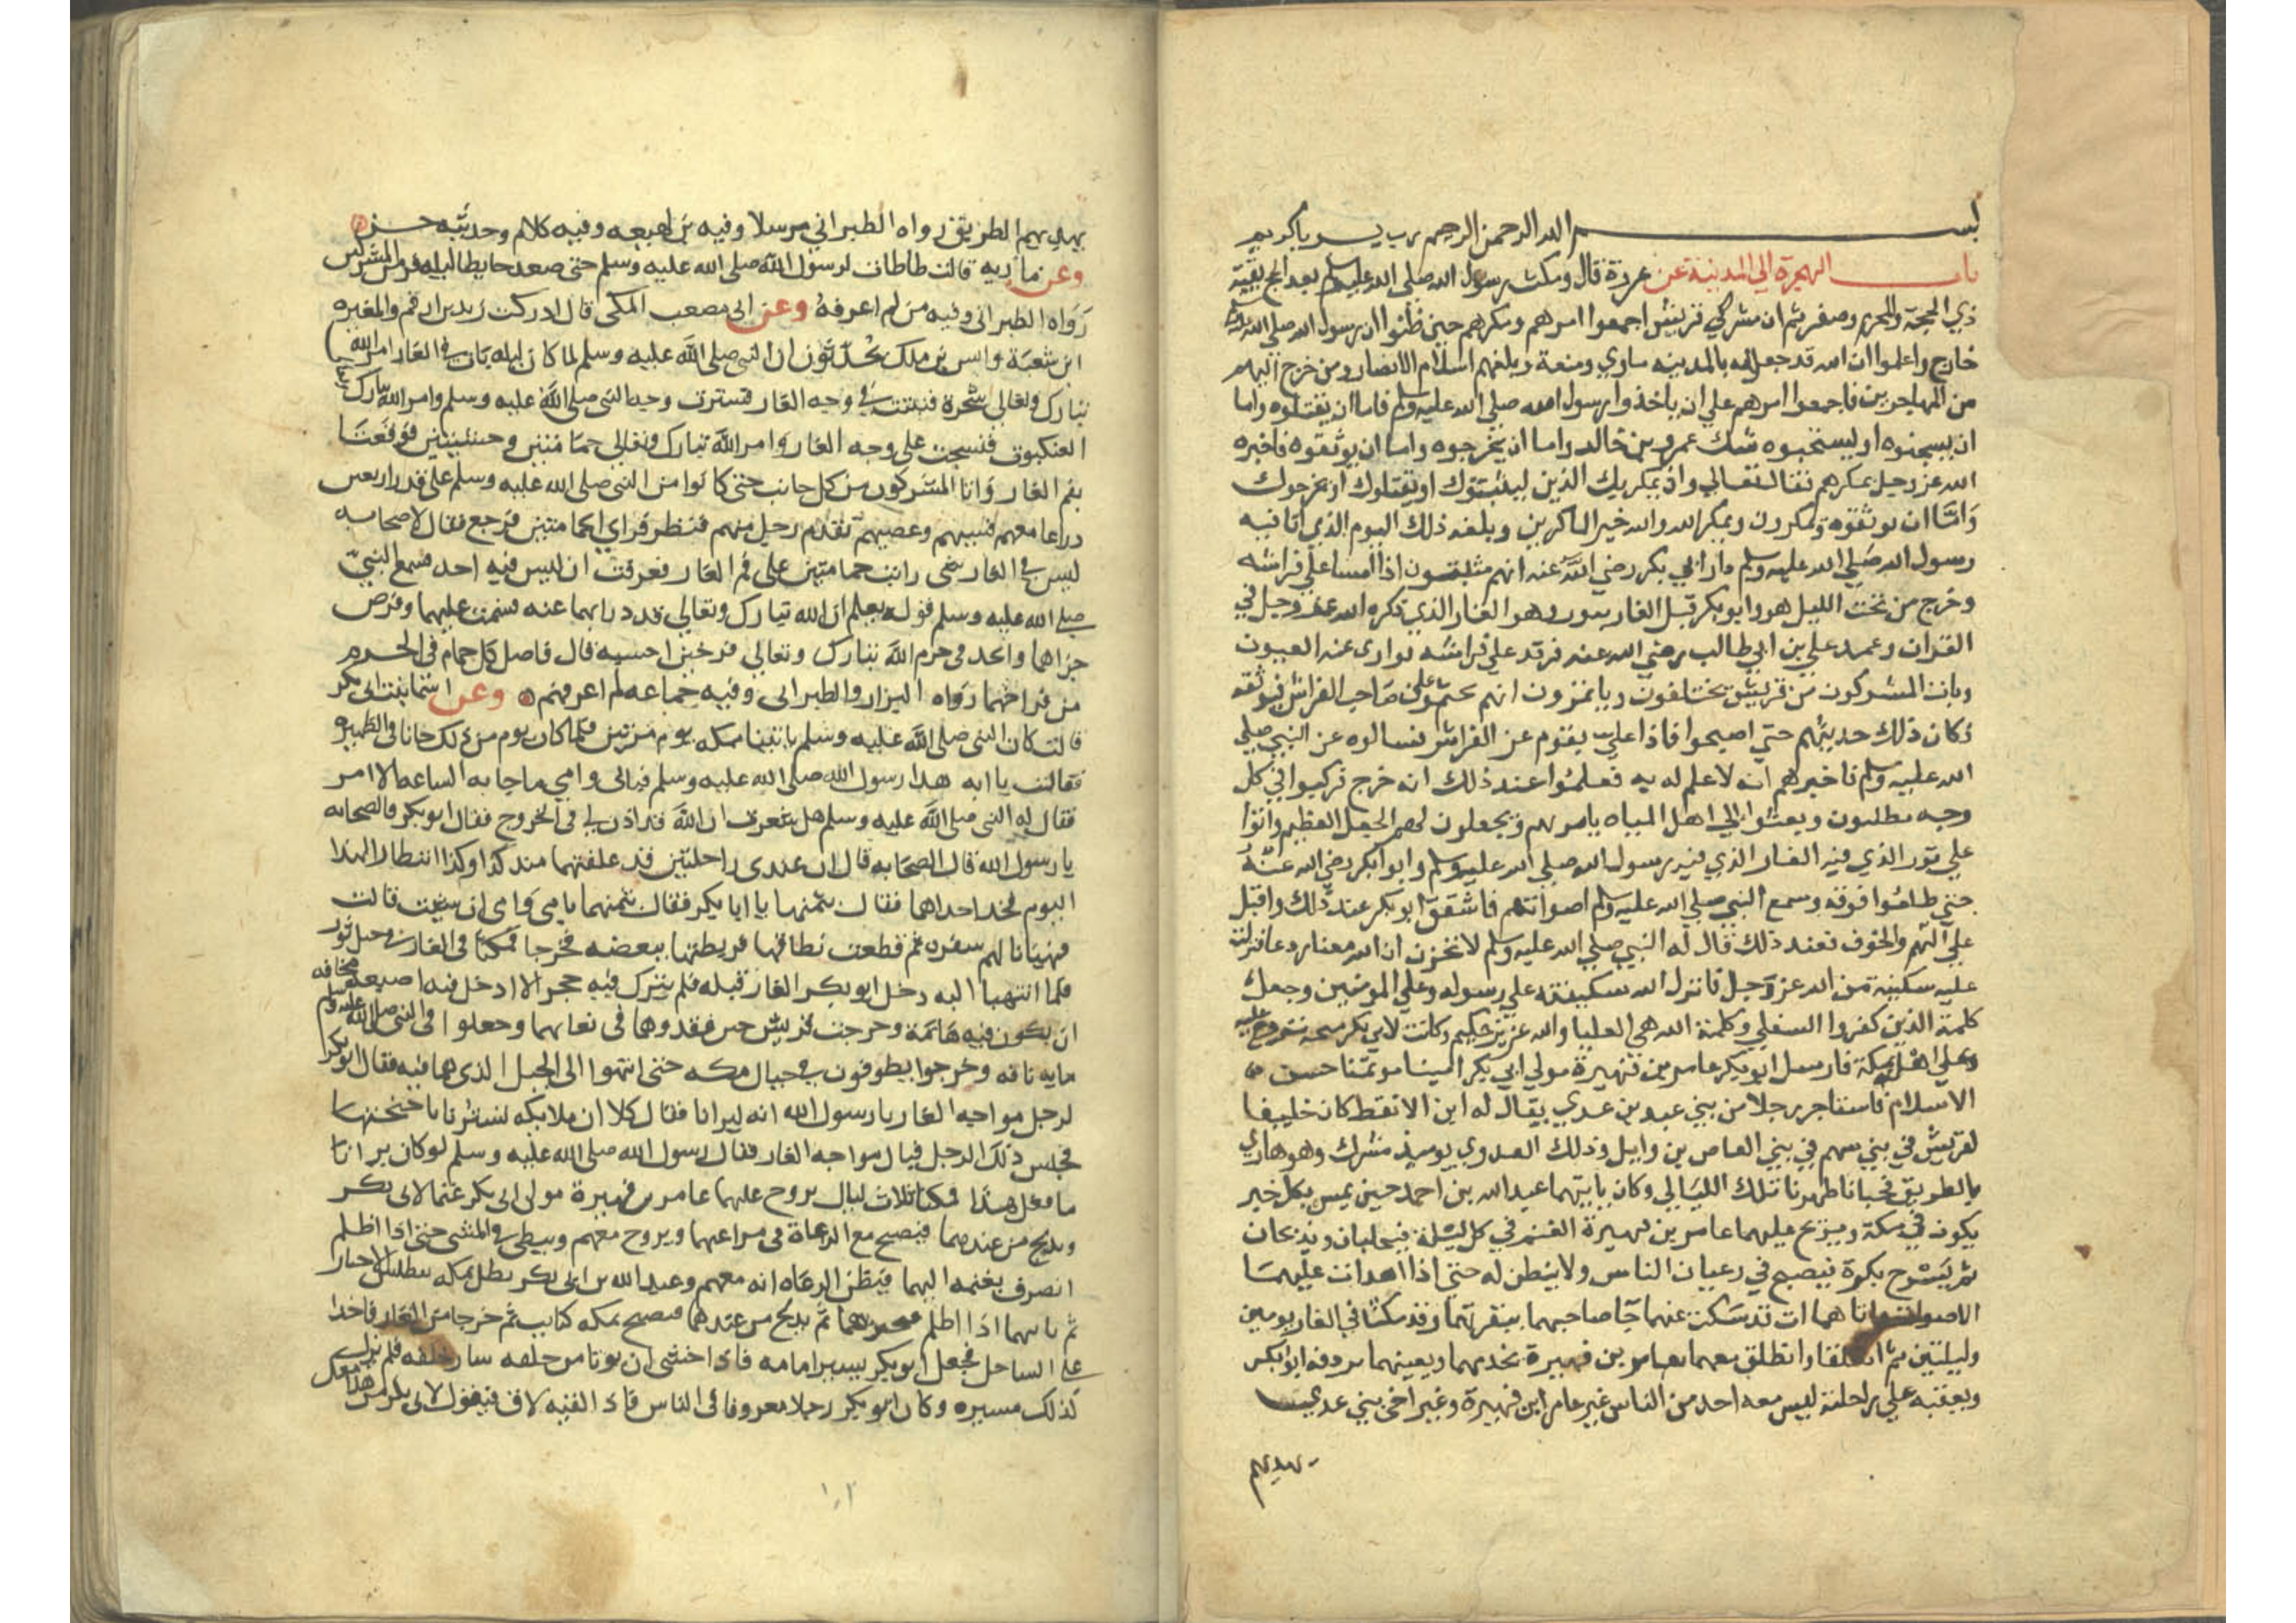 بسم الله الرحمن الرحيم رب يسر ياكريم
باب الهجرة الي المدينة عن عروة قال ومكث رسول الله صلى الله عليه وسلم بعد الحج بقية
ذي الحجة والمحرم وصفر ثم ان مشركي قريش اجمعوا امرهم ومكرهم حين ظنوا ان رسول الله صلى الله
خارج واعلموا ان الله قد جعل له بالمدينه ماوي ومنعة وبلغهم اسلام الانصار ومن خرج اليهم
من المهاجرين فاجمعوا امرهم علي ان ياخذوا رسول الله صلى الله عليه وسلم فاما ان يقتلوه واما
ان يسجنوه او ليستخبوه شك عمرو بن خالد واما ان يخرجوه واما ان يوثقوه فاخبره
الله عز وجل بمكرهم فقال تعالي واذ يمكر بك الذين ليثبتوك او يقتلوك او يخرجوك
واما ان يوثقوه ويمكرون ويمكر الله والله خير الماكرين وبلغه ذلك اليوم الذي اتا فيه
رسول الله صلي الله عليه وسلم دار ابي بكر رضي الله عنه انهم مثبتون اذا امسا علي فراشه
وخرج من تحت الليل هو وابو بكر قبل الغار بثور وهو الغار الذي ذكره الله عز وجل في
القران وعمد علي بن ابي طالب رضي الله عنه فرقد علي فراشه يوارى عنه العيون
وبات المشركون من قريش يختلفون وياتمزون انهم على صاحب الفراش فيوثقه
فكان ذلك حديثهم حتي اصبحوا فاذا علي يقوم عن الفراش فسالوه عن النبي صلي
الله عليه وسلم فاخبرهم انه لا علم له به فعلموا عند ذلك انه خرج فركبوا في كل
وجه يطلبون وبعثوا الي اهل المياه يامرهم ويجعلون لهم الجعل العظيم واتوا
علي ثور الذي فيه الغار الذي فيه رسول الله صلي الله عليه وسلم وابو بكر رضي الله عنه
حتي طلعوا فوقه وسمع النبي صلي الله عليه وسلم اصواتهم فاشفق ابو بكر عند ذلك واقبل
علي الهم والخوف فعند ذلك قال له النبي صلي الله عليه وسلم لا تحزن ان الله معنا ودعا فنزلت
عليه سكينة من الله عز وجل فانزل الله سكينته علي رسوله وعلي المومنين وجعل
كلمة الذين كفروا السفلي وكلمة الله هي العليا والله عزيز حكيم وكانت لابي بكر منحه تروح عليه
وعلي اهله بمكة فارسل ابو بكر عامر بن فهيرة مولي ابي بكر امينا موتمنا حسن
الاسلام فاستاجر رجلا من بني عبد بن عدي يقال له ابن الانقط كان حليفا
لقريش في بني سهم في بني العاص بن وايل وذلك العدوي يوميذ مشرك وهو هادي
بالطريق فخبانا ظهرنا تلك الليالي وكان ياتيهما عبد الله بن احمد حين يمسي بكل خير
يكون في مكة ويريح عليهما عامر بن فهيرة الغنم في كل ليلة فيحلبان ويذبحان
ثم يسرح بكرة فيصبح في رعيان الناس ولا يفطن له حتي اذا اهدات عليهما
الاصوات واتاهما ان قد سكت عنهما جآ صاحبهما ببعيرتهما وقد مكثا في الغار يومين
وليلتين ثم انطلقا وانطلق معهما عامر بن فهيرة يخدمهما ويعينهما يردفه ابو بكر
ويعقبه علي راحلته ليس معه احد من الناس غير عامر ابن فهيرة وغير اخي بني عدي
يهديهم
يهديهم الطريق رواه الطبراني مرسلا وفيه بن لهيعه وفيه كلام وحديثه حسن
وعن مارية قالت طاطات لرسول الله صلى الله عليه وسلم حتى صعد حايطا ليلة فر من المشركين
رواه الطبراني وفيه من لم اعرفه وعن ابى مصعب المكى قال ادركت زيد بن ارقم والمغيره
ابن شعبة وانس بن ملك يحدثون ان النبي صلى الله عليه وسلم لما كان ليله بات في الغار امر الله
تبارك وتعالى شجرة فنبتت في وجه الغار فسترت وجه النبي صلى الله عليه وسلم وامر الله تبارك
العنكبوت فنسجت على وجه الغار وامر الله تبارك وتعالى حمامتين وحشيتين فوقعتا
بفم الغار واتا المشركون من كل جانب حتى كانوا من النبي صلى الله عليه وسلم على قدر اربعين
دراعا معهم قسيهم وعصيهم تقدم رجل منهم فنظر فراي الحمامتين فرجع فقال لاصحابه
ليس في الغار شى رايت حمامتين على فم الغار فعرفت ان ليس فيه احد فسمع النبي
صلى الله عليه وسلم قوله فعلم ان الله تبارك وتعالى قد درا بهما عنه فسمت عليهما وفرض
جزاهما واتخد في حرم الله تبارك وتعالى فرخين احسبه قال فاصل كل حمام في الحرم
من فراخهما رواه البزار والطبراني وفيه جماعه لم اعرفهم وعن اسما بنت ابى بكر
قالت كان النبي صلى الله عليه وسلم ياتينا بمكه يوم مرتين فلما كان يوم من ذلك جانا في الظهيره
فقالت يا ابه هدا رسول الله صلى الله عليه وسلم فبابى وامي ما جا به الساعه الا امر
فقال له النبي صلى الله عليه وسلم هل شعرت ان الله قد اذن لي في الخروج فقال ابو بكر فالصحابه
يا رسول الله قال الصحابه قال ان عندى راحلتين قد علفتهما مند كدا وكدا انتطارا لهدا
اليوم فخد احداهما فقال بثمنها يا ابا بكر فقال بثمنهما بابى وامى ان شيت قالت
فهيانا لهم سفره ثم قطعت نطاقها فربطتها ببعضه فخرجا فمكثا في الغار في جبل ثور
فلما انتهيا اليه دخل ابو بكر الغار قبله فلم يترك فيه جحر الا ادخل فيه اصبعه مخافه
ان يكون فيه هامة وخرجت قريش حين فقدوهما في بغايهما وجعلوا في النبي صلى الله عليه وسلم
مايه ناقه وخرجوا يطوفون في جبال مكه حتى انتهوا الى الجبل الذى هما فيه فقال ابو بكر
لرجل مواجه الغار يا رسول الله انه ليرانا فقال كلا ان ملايكه تسترنا باجنحتها
فجلس ذلك الرجل فبال مواجه الغار فقال رسول الله صلى الله عليه وسلم لو كان يرانا
ما فعل هذا فمكثا ثلاث ليال يروح عليهما عامر بن فهيرة مولى ابى بكر غنما لابى بكر
ويدلج من عندهما فيصبح مع الرعاة في مراعيها ويروح معهم ويبطى في المشى حتى اذا اظلم
انصرف بغنمه اليهما فيظن الرعاه انه معهم وعبد الله بن ابى بكر يظل بمكه يتطلب الاخبار
ثم ياتيهما اذا اظلم فيخبرهما ثم يدلج من عندهما فيصبح بمكه كبايت ثم خرجا من الغار فاخدا
على الساحل فجعل ابو بكر يسير امامه فاذا خشى ان يوتا من خلفه سار خلفه فلم يزل
كذلك مسيره وكان ابو بكر رجلا معروفا في الناس فاذا لقيه لاق فيقول لابى بكر من هدا معك
١٠٢